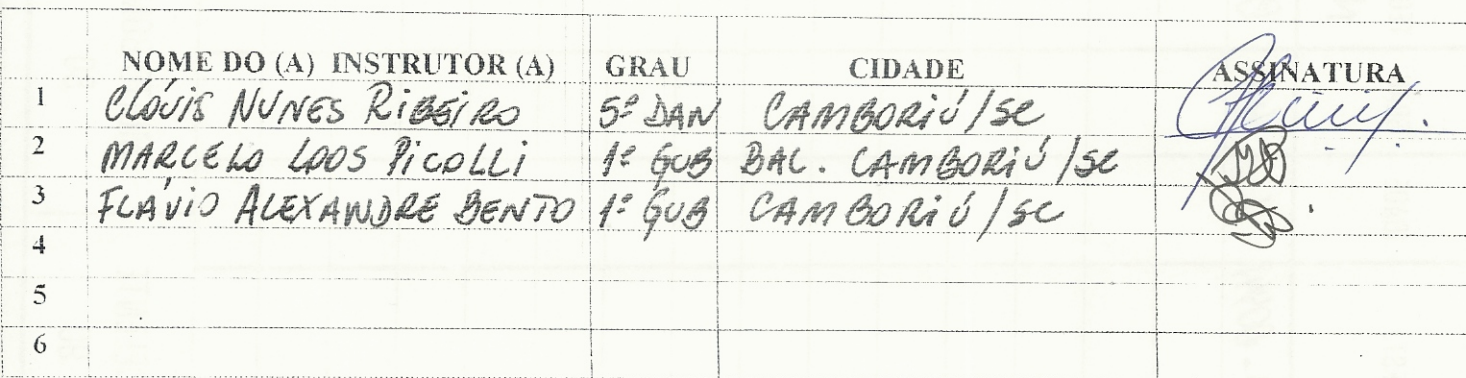 NOME DO (A) INSTRUTOR (A) GRAU CIDADE ASSINATURA
1 CLÓVIS NUNES RIBEIRO 5º DAN CAMBORIÚ/SC
2 MARCELO LOOS PICOLLI 1º GUB BAL. CAMBORIÚ/SC
3 FLÁVIO ALEXANDRE BENTO 1º GUB CAMBORIÚ/SC
4
5
6